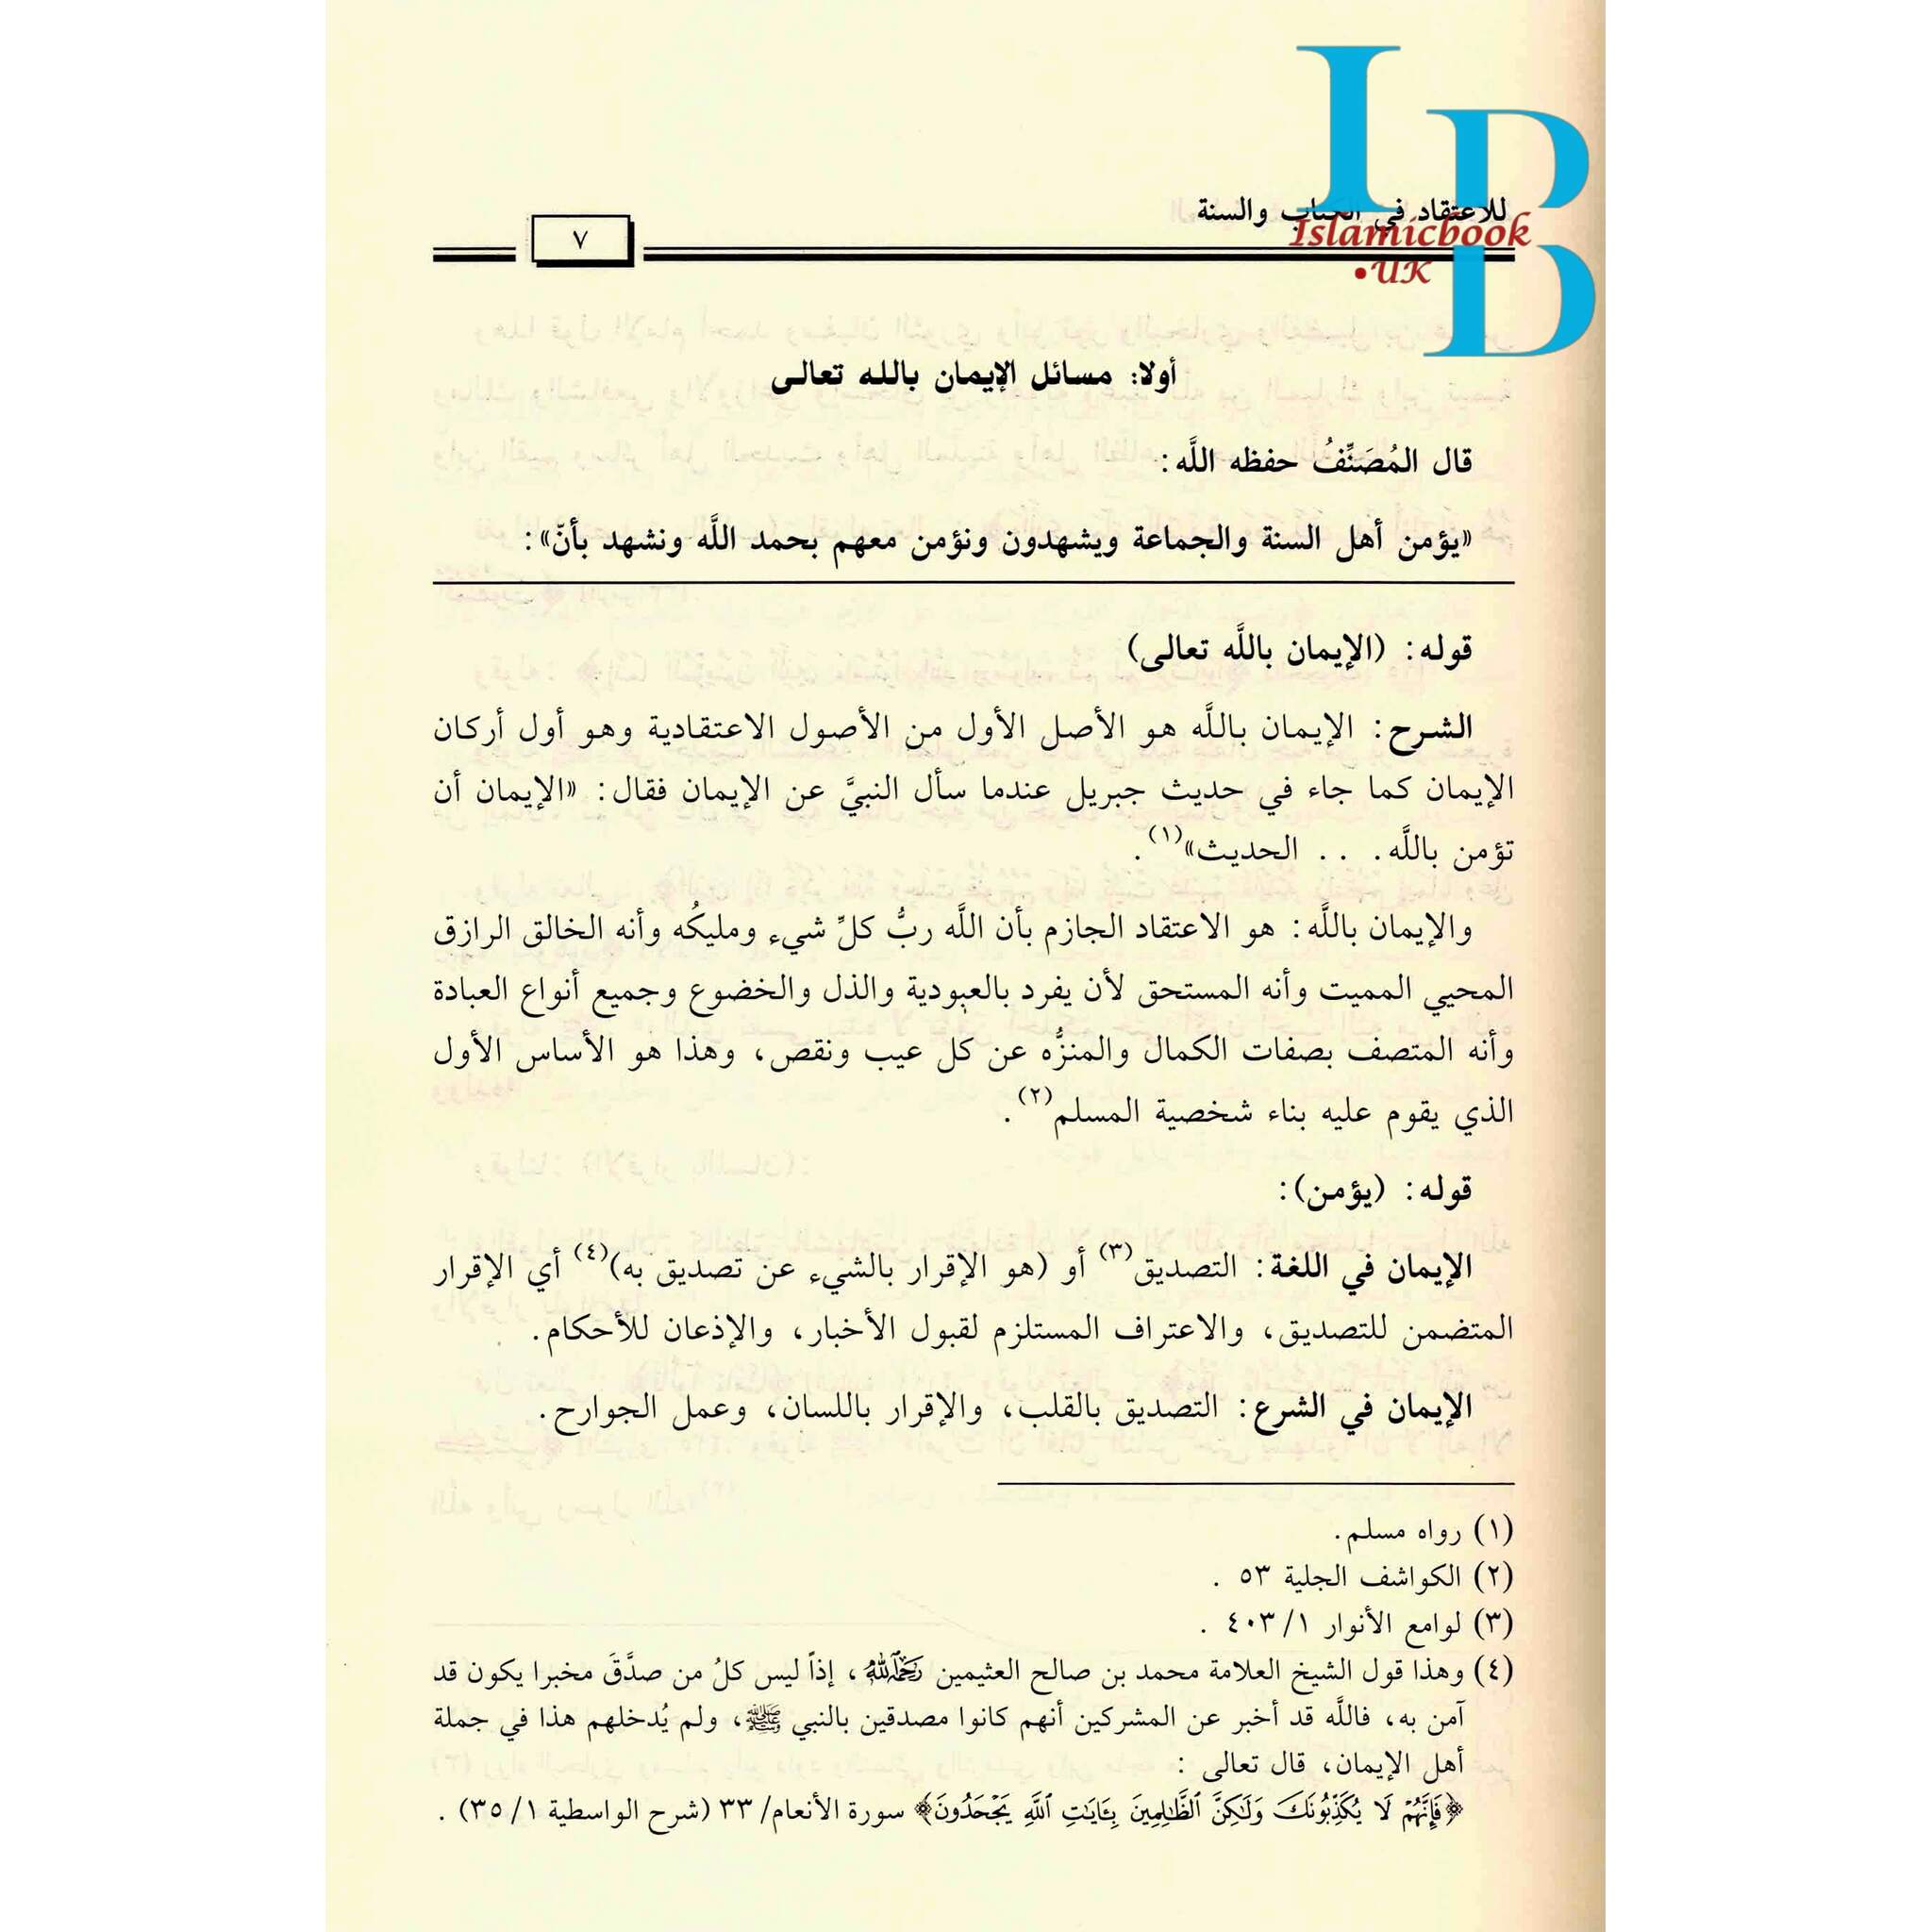 للاعتقاد في الكتاب والسنة
٧
IBD
Islamicbook
.UK
أولا: مسائل الإيمان بالله تعالى
قال المُصَنِّفُ حفظه اللَّه:
«يؤمن أهل السنة والجماعة ويشهدون ونؤمن معهم بحمد اللَّه ونشهد بأنّ»:
قوله: (الإيمان باللَّه تعالى)
الشرح: الإيمان باللَّه هو الأصل الأول من الأصول الاعتقادية وهو أول أركان
الإيمان كما جاء في حديث جبريل عندما سأل النبيَّ عن الإيمان فقال: «الإيمان أن
تؤمن باللَّه. . . الحديث»(١).
والإيمان باللَّه: هو الاعتقاد الجازم بأن اللَّه ربُّ كلِّ شيء ومليكُه وأنه الخالق الرازق
المحيي المميت وأنه المستحق لأن يفرد بالعبودية والذل والخضوع وجميع أنواع العبادة
وأنه المتصف بصفات الكمال والمنزُّه عن كل عيب ونقص، وهذا هو الأساس الأول
الذي يقوم عليه بناء شخصية المسلم(٢).
قوله: (يؤمن):
الإيمان في اللغة: التصديق(٣) أو (هو الإقرار بالشيء عن تصديق به)(٤) أي الإقرار
المتضمن للتصديق، والاعتراف المستلزم لقبول الأخبار، والإذعان للأحكام.
الإيمان في الشرع: التصديق بالقلب، والإقرار باللسان، وعمل الجوارح.
(١) رواه مسلم.
(٢) الكواشف الجلية ٥٣ .
(٣) لوامع الأنوار ١/ ٤٠٣ .
(٤) وهذا قول الشيخ العلامة محمد بن صالح العثيمين رحمه الله، إذاً ليس كلُ من صدَّقَ مخبرا يكون قد
آمن به، فاللَّه قد أخبر عن المشركين أنهم كانوا مصدقين بالنبي ﷺ، ولم يُدخلهم هذا في جملة
أهل الإيمان، قال تعالى :
﴿فَإِنَّهُمْ لَا يُكَذِّبُونَكَ وَلَٰكِنَّ ٱلظَّٰلِمِينَ بِـَٔايَٰتِ ٱللَّهِ يَجْحَدُونَ﴾ سورة الأنعام/ ٣٣ (شرح الواسطية ١/ ٣٥) .